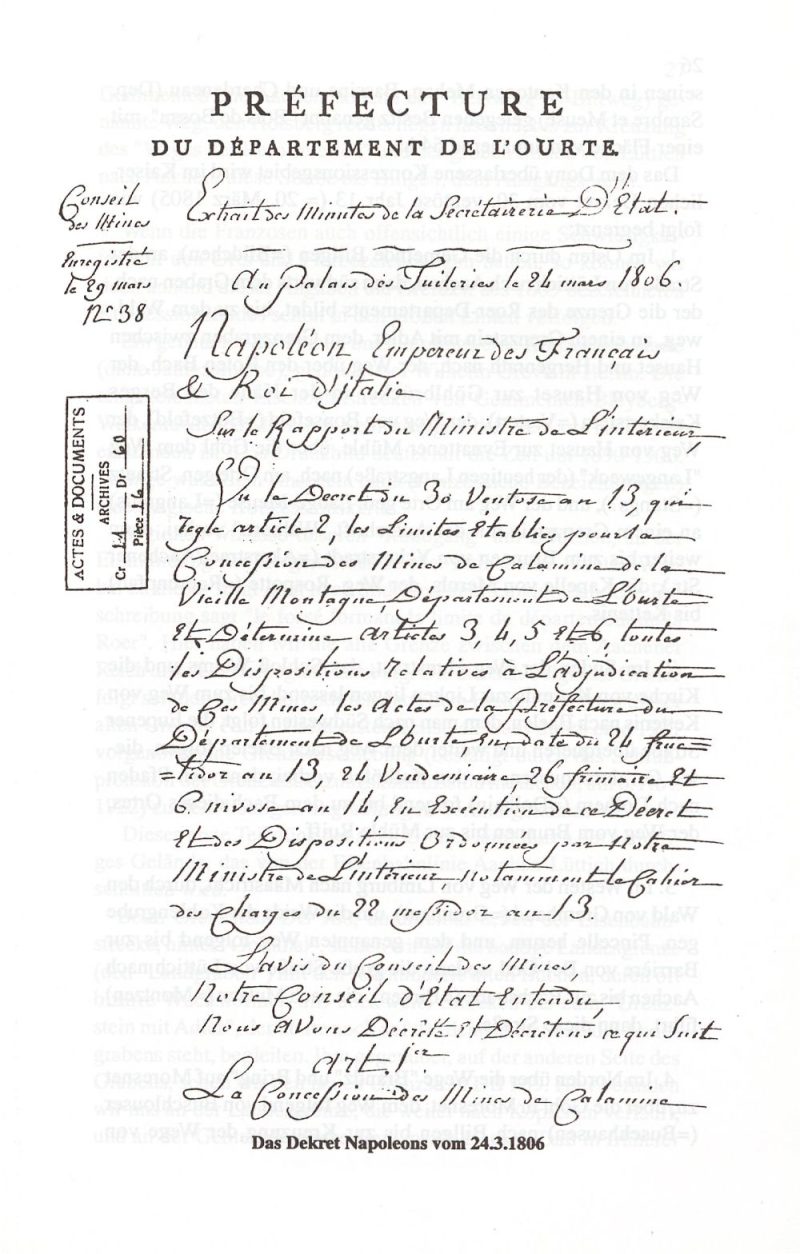 PRÉFECTURE
DU DÉPARTEMENT DE L'OURTE.
Conseil
des Mines
Enregistré
le 29 mars
Nº 38
Extrait des Minutes de la Secrétairerie D'État.
Au palais des Tuileries le 24 mars 1806.
Napoléon Empereur des Français
& Roi d'italie
Sur le Rapport du Ministre de L'intérieur
ACTES & DOCUMENTS
ARCHIVES
Cr 11 Dr 60
Pièce 16
Vu le Decret du 30 Ventose an 13 qui
regle article 2, les Limites Etablies pour la
Concession des Mines de Calamine de la
Vieille Montagne, Département de L'Ourte
Et Détermine articles 3, 4, 5 et 6, toutes
les Dispositions relatives à L'adjudication
de Ces Mines, les Actes de la préfecture du
Département de L'Ourte En date du 24 fruc=
=tidor an 13, 24 Vendemiaire, 26 frimaire Et
6 nivose an 14, En Exécution de ce Décret
Et des Dispositions Ordonnées par Notre
Ministre de L'intérieur notamment le Cahier
des Charges du 22 messidor an 13.
L'avis du Conseil des Mines;
Notre Conseil d'État Entendu,
Nous avons Décrété Et Décretons ce qui Suit
art. 1.er
La Concession des Mines de Calamine
Das Dekret Napoleons vom 24.3.1806